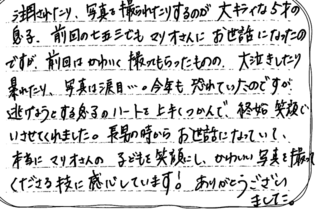 注目されたり、写真を撮られたりするのが大キライな5才の
息子、前回の七五三でもマリオさんにお世話になったの
ですが、前回はかわいく撮ってもらったものの、大泣きしたり
暴れたり、写真は涙目…。今年も恐れていたのですが、
逃げようとする息子のハートを上手くつかんで、終始笑顔で
いさせてくれました。長男の時からお世話になっていて、
本当にマリオさんの子どもを笑顔にし、かわいい写真を撮って
くださる技に感心しています!ありがとうござい
ました。